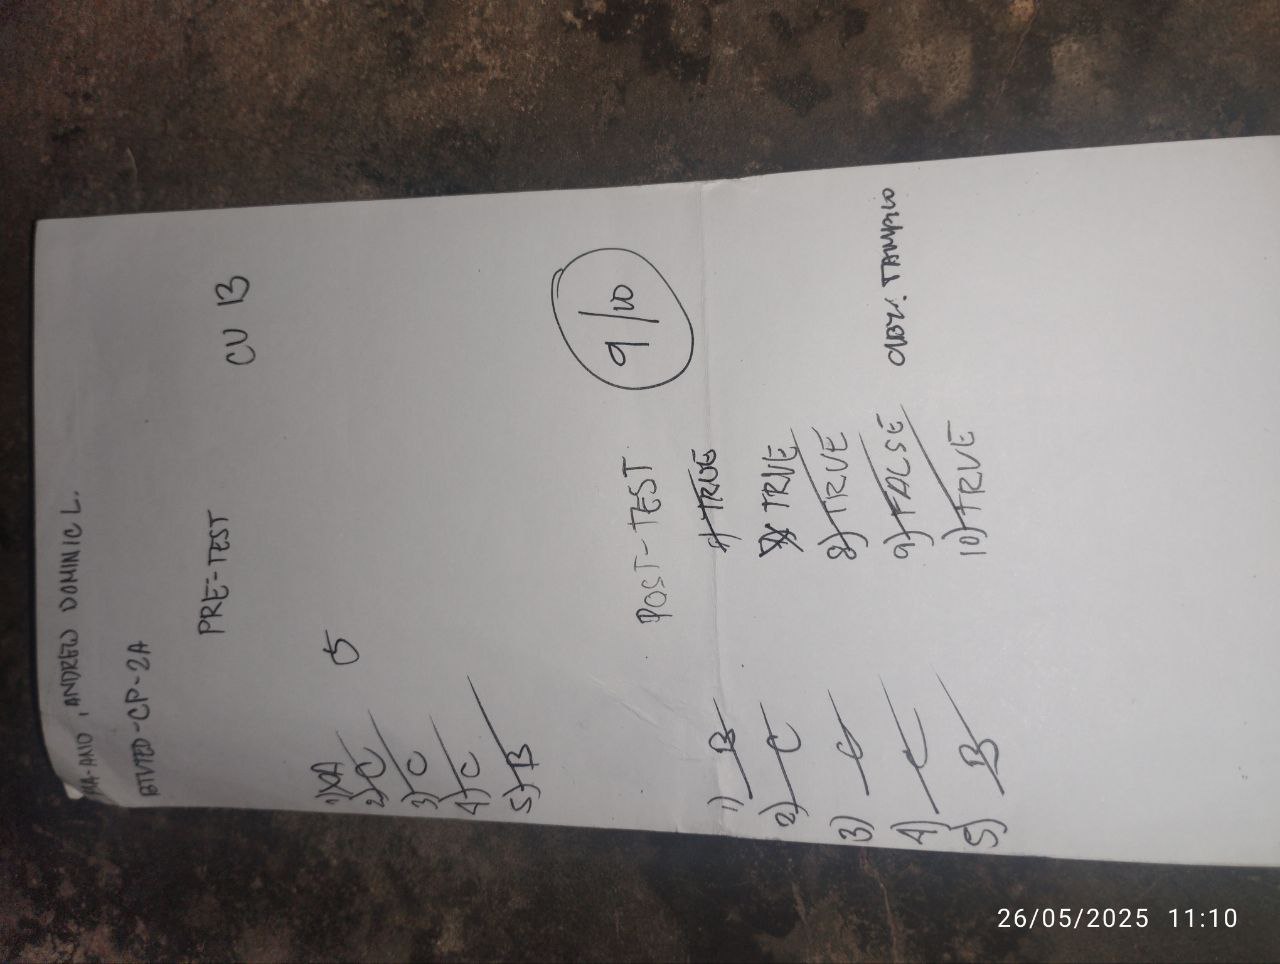 MA-ANO, ANDREW DOMINIC L.
BTVTED-CP-2A
PRE-TEST
CU 13
1) A
2) C
3) C
4) C
5) B
5
POST-TEST
9/10
1) B
2) C
3) C
4) C
5) B
6) TRUE
7) TRUE
8) TRUE
9) FALSE
10) TRUE
TAMPICO
26/05/2025 11:10